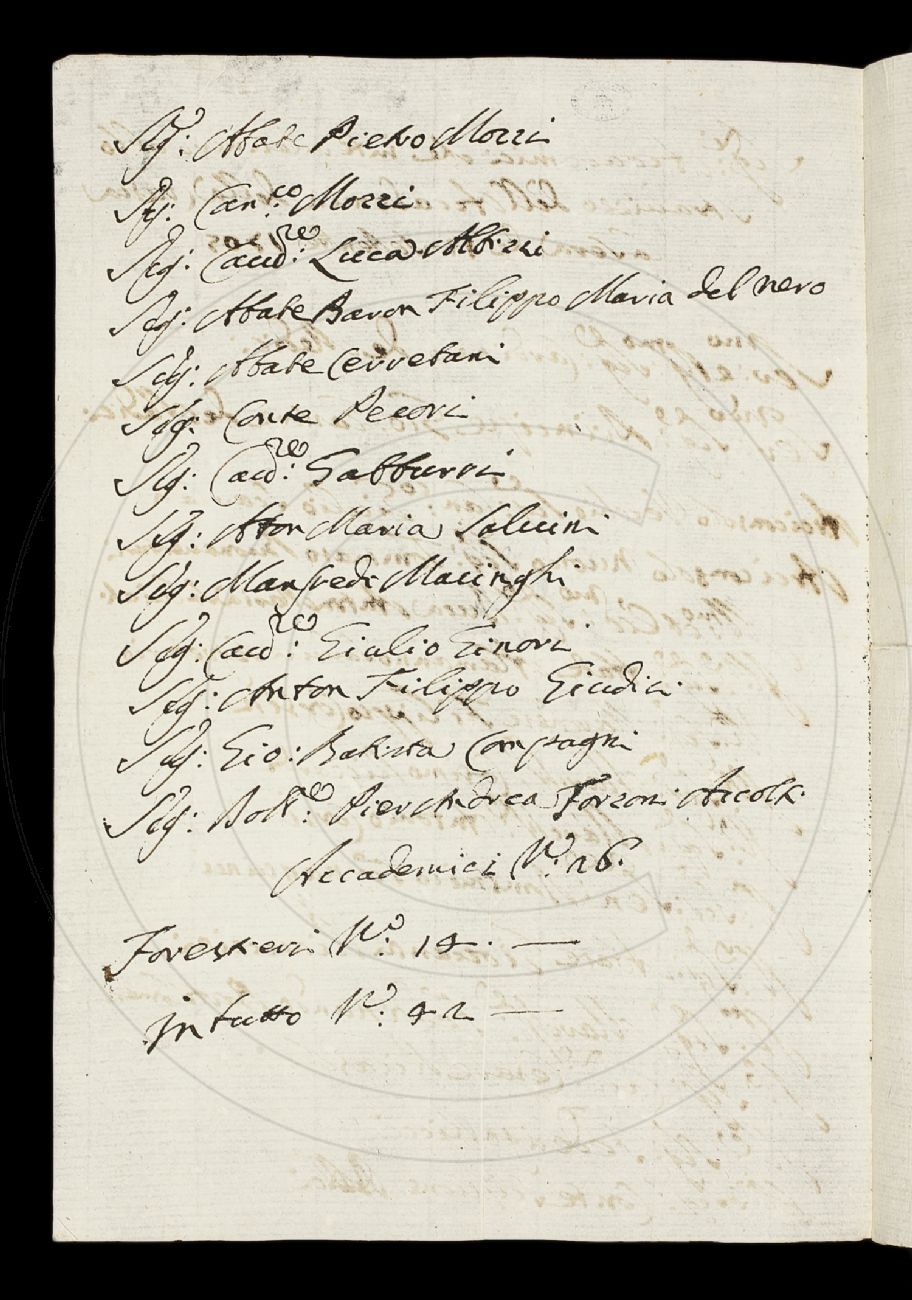 Sig: Abate Pietro Mozzi
Sig: Can:co Mozzi
Sig: Cau:re Luca Albizzi
Sig: Abate Baron Filippo Maria del nero
Sig: Abate Cerretani
Sig: Conte Pecori
Sig: Cau:re Gabburri
Sig: Aton Maria Salvini
Sig: Manfredi Macinghi
Sig: Cau:re Giulio Ginori
Sig: Anton Filippo Giudici
Sig: Gio: Batista Compagni
Sig: Dott:e Pier Andrea Forzoni Accolti
Accademici N:o 28.
Forestieri N:o 14. —
in tutto N:o 42 —